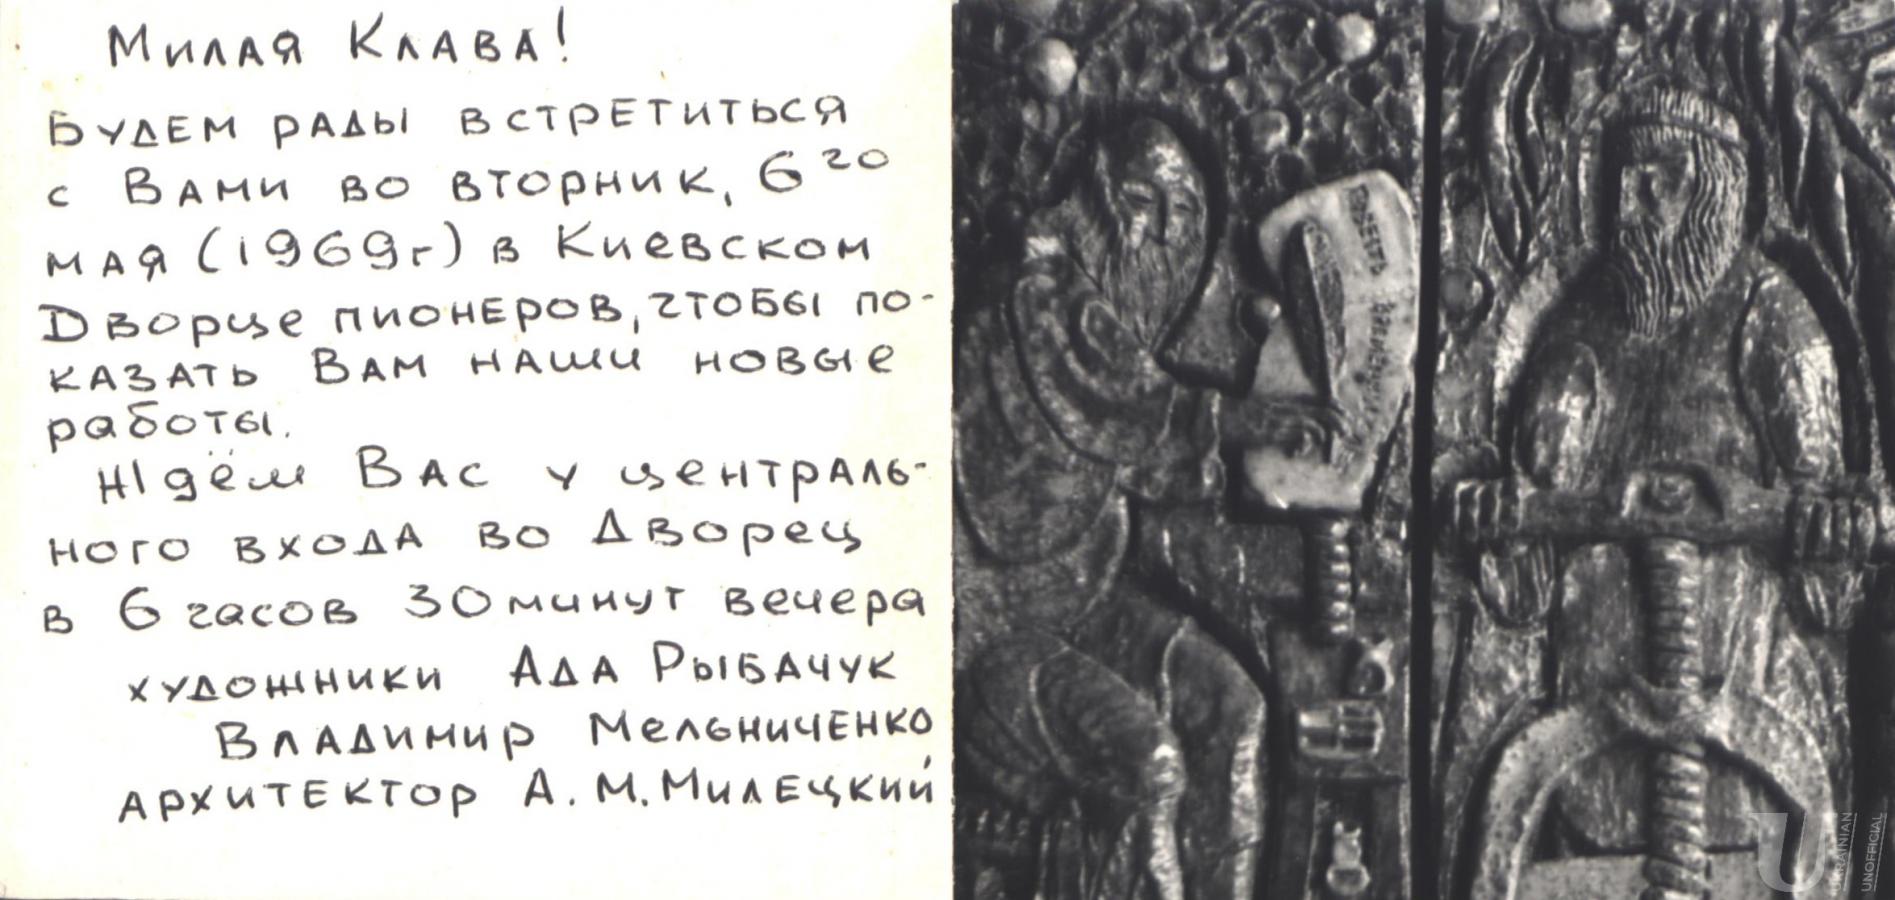 Милая Клава!
Будем рады встретиться
с Вами во вторник, 6го
мая (1969г) в Киевском
Дворце пионеров, чтобы по-
казать Вам наши новые
работы.
Ждём Вас у централь-
ного входа во Дворец
в 6 часов 30 минут вечера
художники Ада Рыбачук
Владимир Мельниченко,
архитектор А.М.Милецкий
U UKRAINIAN
UNOFFICIAL